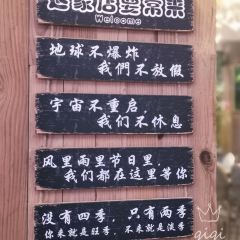 这家店要常来
Welcome
地球不爆炸
我們不放假
宇宙不重启，
我们不休息
风里雨里节日里，
我们都在这里等你
没有四季，只有两季
你来就是旺季 不来就是淡季
gigi